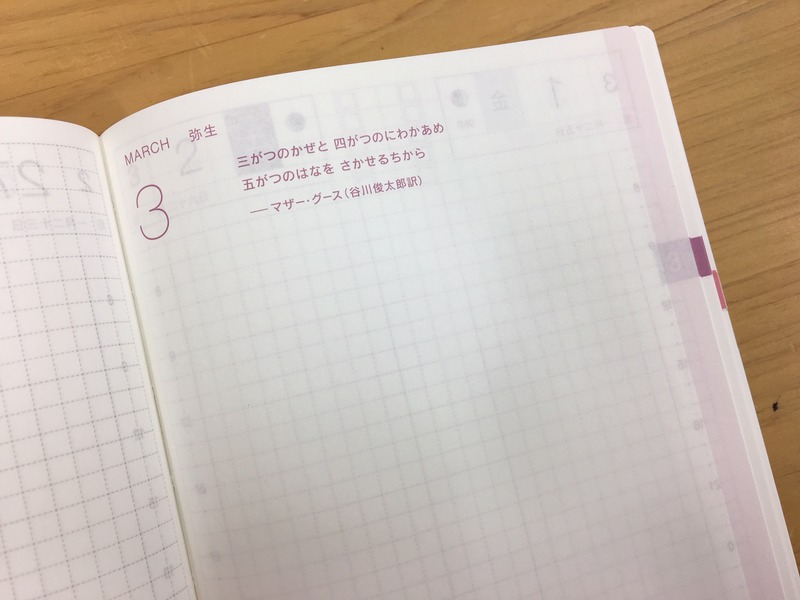 MARCH 弥生
3
三がつのかぜと 四がつのにわかあめ
五がつのはなを さかせるちから
── マザー・グース(谷川俊太郎訳)